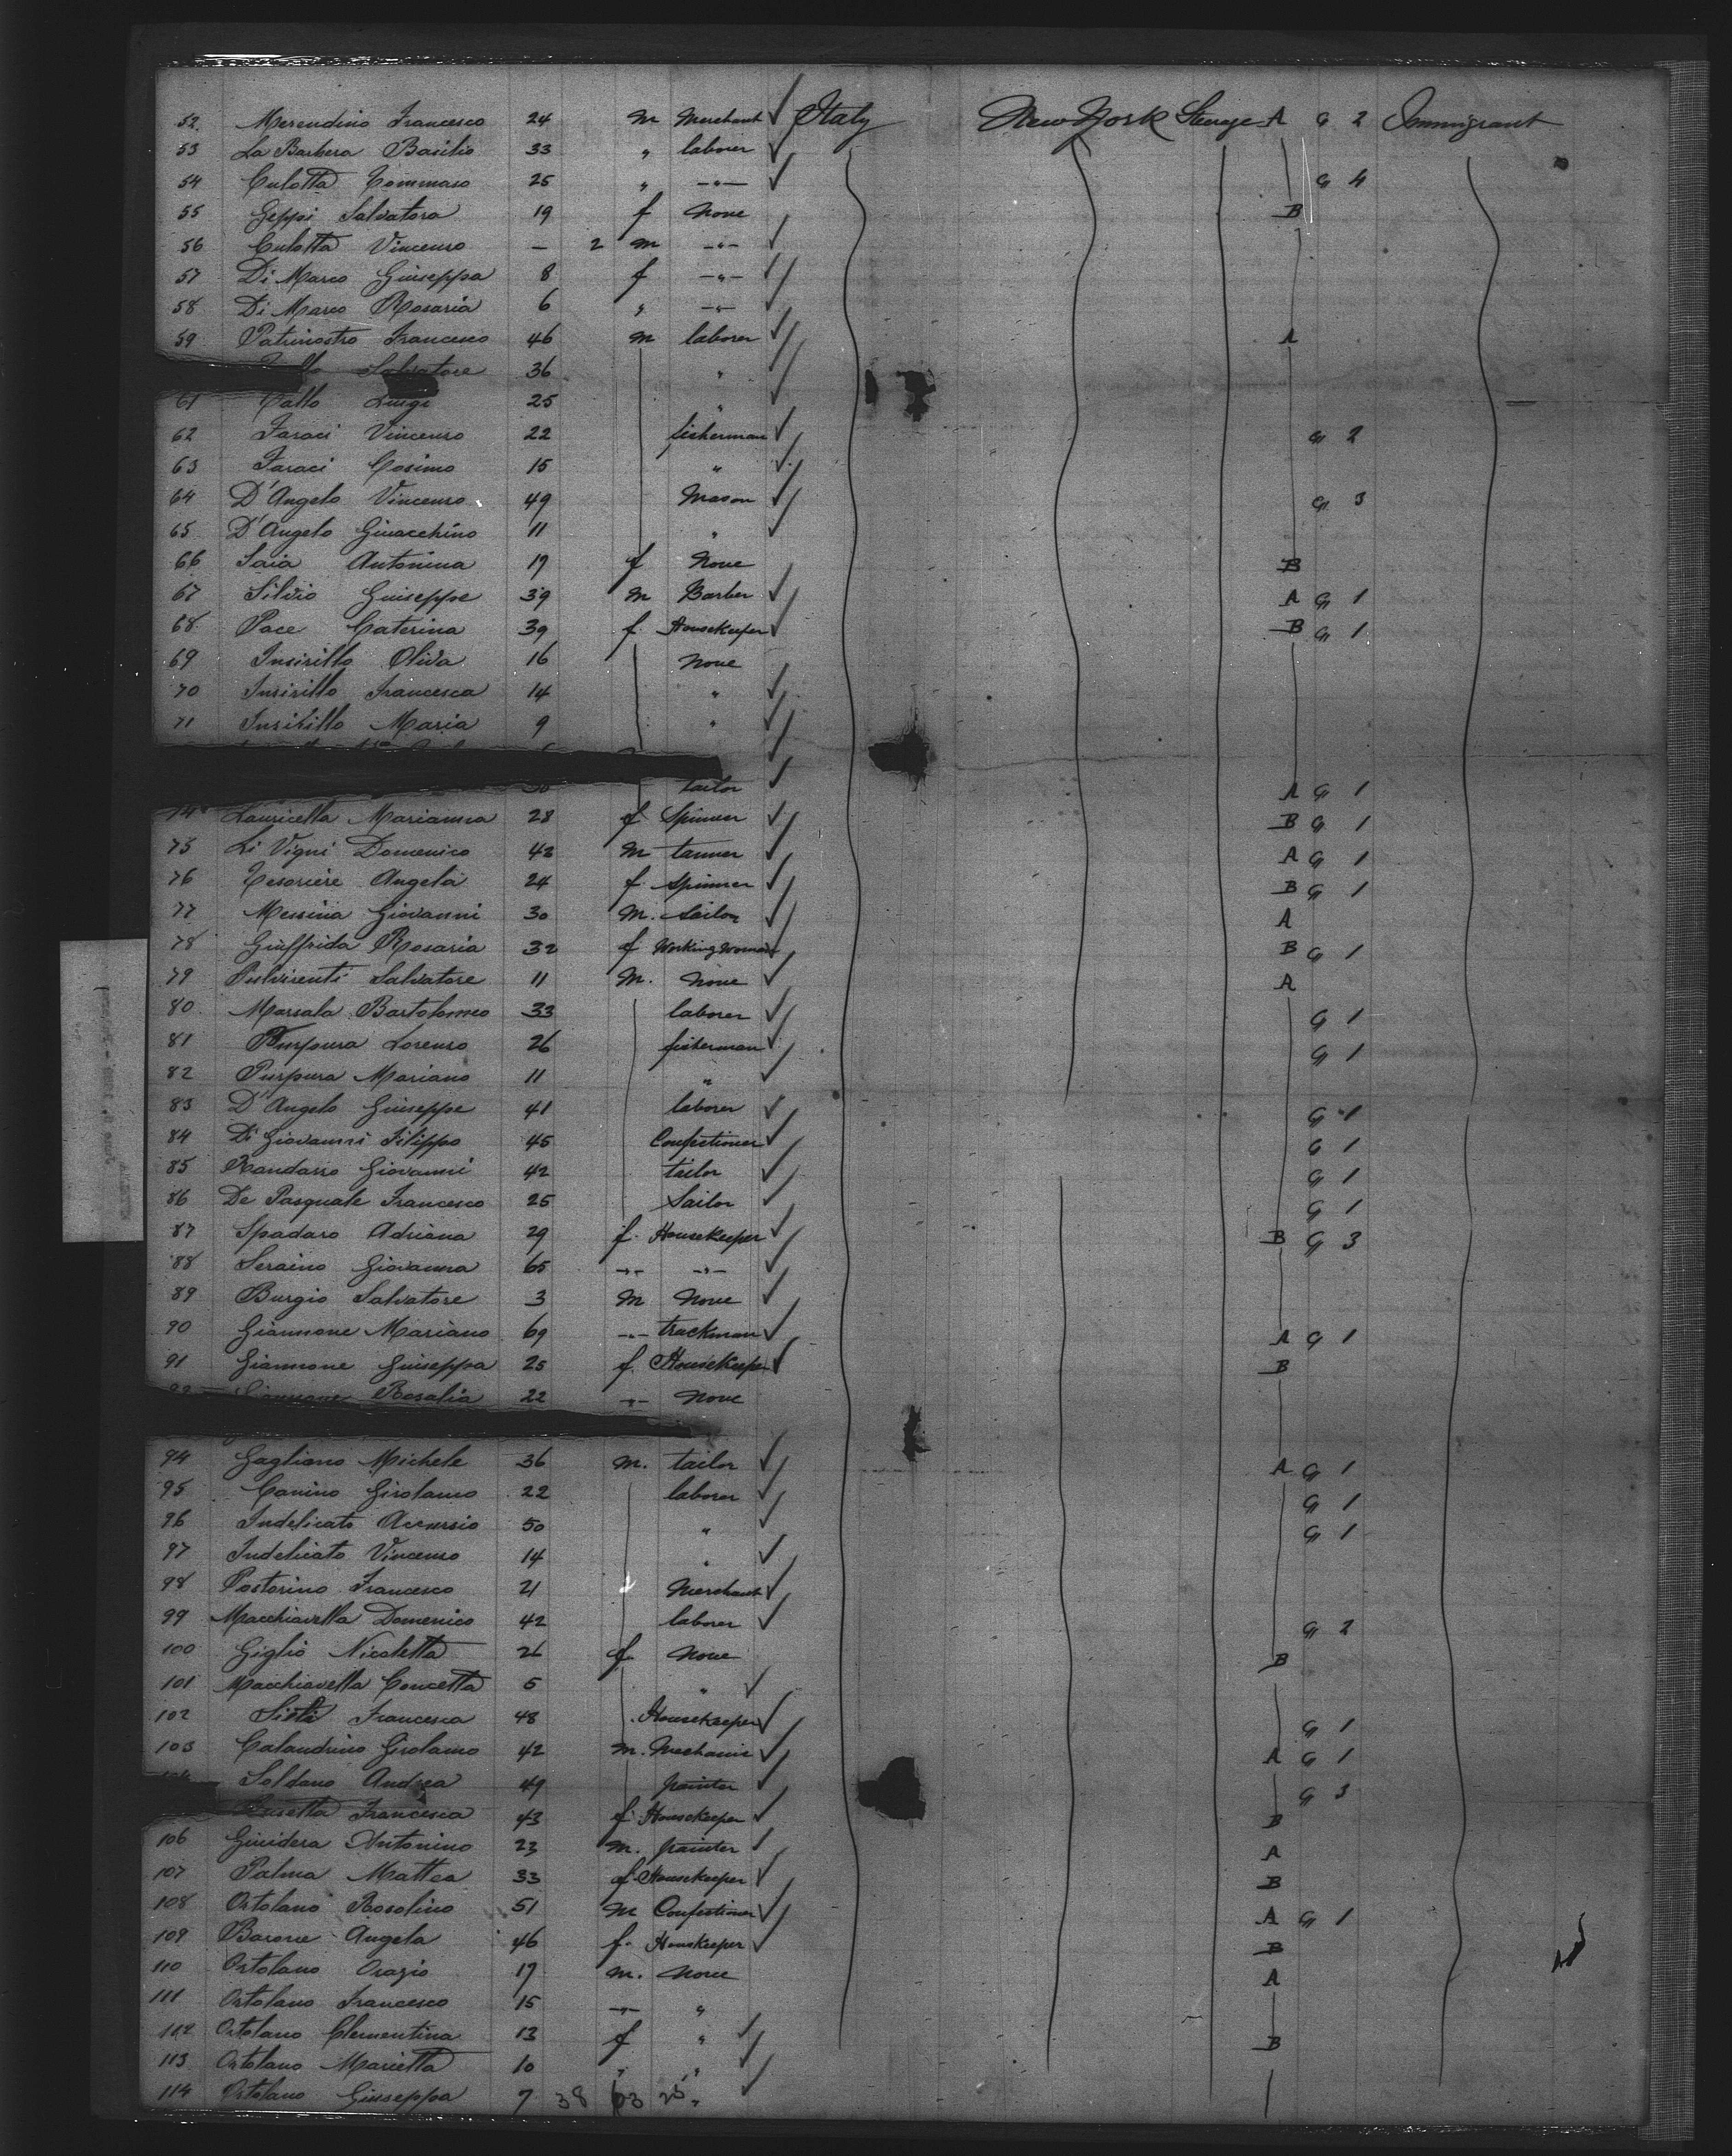 52 Merendino Francesco 24 m Merchant Italy New York Steerage A G 2 Immigrant
53 La Barbera Basilio 33 " laborer
54 Culotta Tommaso 25 " -"- G 4
55 Geppi Salvatora 19 f None B
56 Culotta Vincenzo - 2 m -"-
57 Di Marco Giuseppa 8 f -"-
58 Di Marco Rosaria 6 " -"-
59 Patrinostro Francesco 46 m laborer A
Salvatore 36 "
61 Gallo Luigi 25 "
62 Faraci Vincenzo 22 fisherman G 2
63 Faraci Cosimo 15 "
64 D'Angelo Vincenzo 49 Mason G 3
65 D'Angelo Giuacchino 11 "
66 Saia Antonina 19 f None B
67 Silvio Giuseppe 39 m Barber A G 1
68 Pace Caterina 39 f. Housekeeper B G 1
69 Insirillo Oliva 16 None
70 Insirillo Francesca 14 "
71 Insirillo Maria 9 "
tailor A G 1
74 Lauricella Marianna 28 f Spinner B G 1
75 Li Vigni Domenico 42 m tanner A G 1
76 Tesoriere Angela 24 f. Spinner B G 1
77 Messina Giovanni 30 m. Sailor A
78 Giuffrida Rosaria 32 f Working woman B G 1
79 Pulvirenti Salvatore 11 m. None A
80 Marsala Bartolomeo 33 laborer G 1
81 Purpura Lorenzo 26 fisherman G 1
82 Purpura Mariano 11 "
83 D'Angelo Giuseppe 41 laborer G 1
84 Di Giovanni Filippo 45 Confectioner G 1
85 Randazzo Giovanni 42 tailor G 1
86 De Pasquale Francesco 25 Sailor G 1
87 Spadaro Adriana 29 f. Housekeeper B G 3
88 Seraino Giovanna 65 -"- -"-
89 Burgio Salvatore 3 m None
90 Giannone Mariano 69 -"- trackman A G 1
91 Giannone Giuseppa 25 f. Housekeeper B
92 Giannone Rosalia 22 -"- None
94 Gagliano Michele 36 m. tailor A G 1
95 Canino Girolamo 22 laborer G 1
96 Indelicato Accursio 50 " G 1
97 Indelicato Vincenzo 14 "
98 Pastorino Francesco 21 Merchant
99 Macchiavella Domenico 42 laborer G 2
100 Giglio Nicoletta 26 f. None B
101 Macchiavella Concetta 5 "
102 Francesca 48 Housekeeper G 1
103 Calandrino Girolamo 42 m. Mechanic A G 1
104 Soldano Andrea 49 painter G 3
Francesca 43 f. Housekeeper B
106 Giuidera Antonino 23 m. painter A
107 Palma Mattea 33 f. Housekeeper B
108 Ortolano Rosolino 51 m Confectioner A G 1
109 Barone Angela 46 f. Housekeeper B
110 Ortolano Orazio 17 m. None A
111 Ortolano Francesco 15 -"- "
112 Ortolano Clementina 13 f " B
113 Ortolano Marietta 10 " "
114 Ortolano Giuseppa 7 38 63 25 "